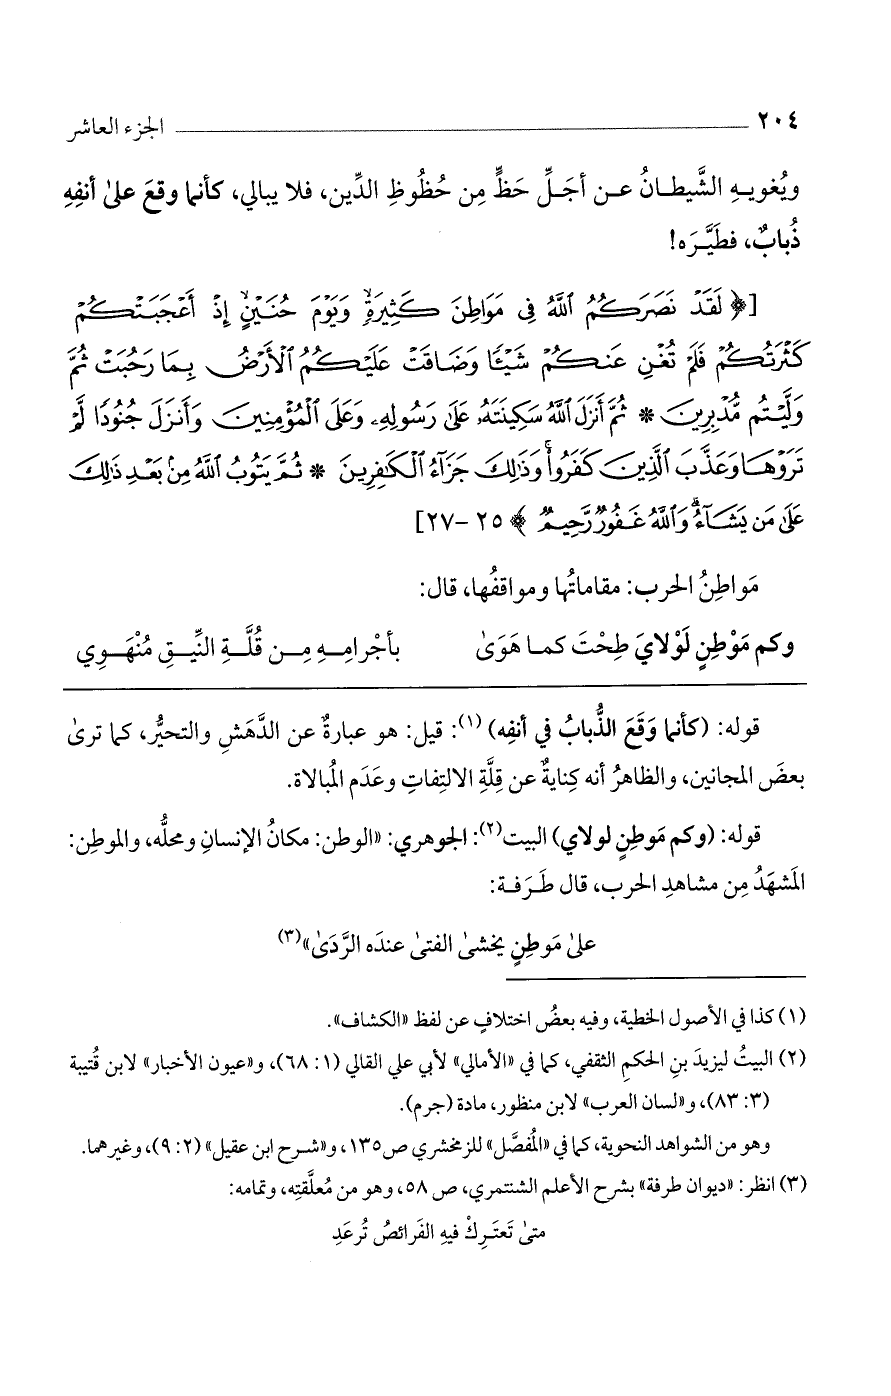 ٢٠٤ الجزء العاشر
ويُغويـهِ الشَّيطـانُ عـن أجَـلِّ حَظٍّ مِن حُظُوظِ الدِّين، فلا يبالي، كأنما وقعَ على أنفِهِ
ذُبابٌ، فطَيَّـرَه!
[﴿ لَقَدْ نَصَرَكُمُ ٱللَّهُ فِى مَوَاطِنَ كَثِيرَةٍ وَيَوْمَ حُنَيْنٍ إِذْ أَعْجَبَتْكُمْ
كَثْرَتُكُمْ فَلَمْ تُغْنِ عَنكُمْ شَيْئًا وَضَاقَتْ عَلَيْكُمُ ٱلْأَرْضُ بِمَا رَحُبَتْ ثُمَّ
وَلَّيْتُم مُّدْبِرِينَ * ثُمَّ أَنزَلَ ٱللَّهُ سَكِينَتَهُۥ عَلَىٰ رَسُولِهِۦ وَعَلَى ٱلْمُؤْمِنِينَ وَأَنزَلَ جُنُودًا لَّمْ
تَرَوْهَا وَعَذَّبَ ٱلَّذِينَ كَفَرُوا۟ وَذَٰلِكَ جَزَآءُ ٱلْكَـٰفِرِينَ * ثُمَّ يَتُوبُ ٱللَّهُ مِنۢ بَعْدِ ذَٰلِكَ
عَلَىٰ مَن يَشَآءُ ۗ وَٱللَّهُ غَفُورٌ رَّحِيمٌ ﴾ ٢٥ -٢٧]
مَواطِنُ الحرب: مقاماتُها ومواقفُها، قال:
وكم مَوْطِنٍ لَوْلايَ طِحْتَ كمـا هَوَىٰ بأجْرامِـهِ مِـن قُلَّـةِ النِّيـقِ مُنْهَـوِي
قوله: (كأنما وَقَعَ الذُّبابُ في أنفِه) (١): قيل: هو عبارةٌ عن الدَّهَشِ والتحيُّر، كما ترىٰ
بعضَ المجانين، والظاهرُ أنه كِنايةٌ عن قِلَّةِ الالتِفاتِ وعَدَمِ المُبالاة.
قوله: (وكم مَوطِنٍ لولاي) البيت(٢): الجوهري: «الوطن: مكانُ الإنسانِ ومحلُّه، والموطِن:
المَشهَدُ مِن مشاهدِ الحرب، قال طَـرَفـة:
علىٰ مَوطِنٍ يخشىٰ الفتىٰ عندَه الرَّدَىٰ»(٣)
(١) كذا في الأصول الخطية، وفيه بعضُ اختلافٍ عن لفظ «الكشاف».
(٢) البيتُ ليزيدَ بنِ الحكمِ الثقفي، كما في «الأمالي» لأبي علي القالي (١: ٦٨)، و«عيون الأخبار» لابن قُتيبة
(٣: ٨٣)، و«لسان العرب» لابن منظور، مادة (جرم).
وهو من الشواهد النحوية، كما في «المُفصَّل» للزمخشري ص١٣٥، و«شـرح ابن عقيل» (٢: ٩)، وغيرهما.
(٣) انظر: «ديوان طرفة» بشرح الأعلم الشنتمري، ص ٥٨، وهو من مُعلَّقتِه، وتمامه:
متىٰ تَعتَـرِكْ فيهِ الفَرائصُ تُرعَدِ